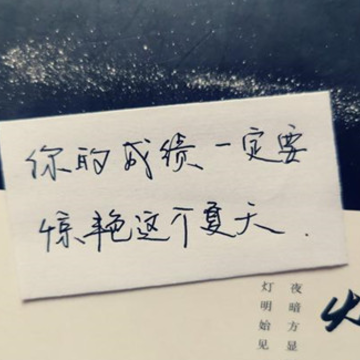 你的成绩一定要
惊艳这个夏天.
夜暗方显
灯明始见
火